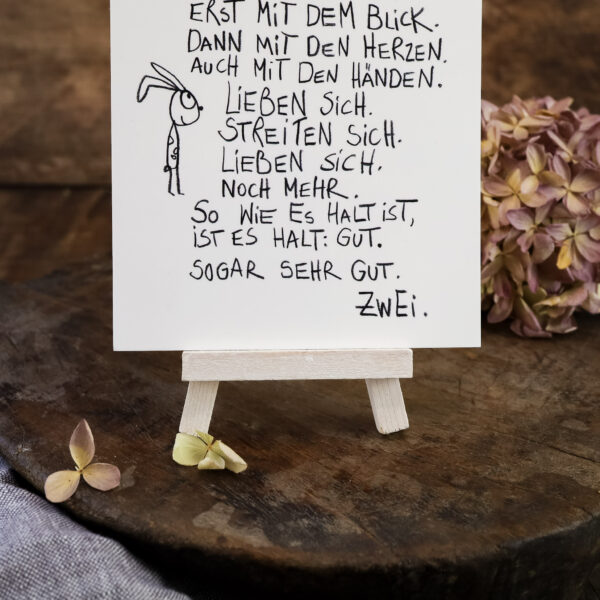 ERST MIT DEM BLICK.
DANN MIT DEN HERZEN.
AUCH MIT DEN HÄNDEN.
LIEBEN SICH.
STREITEN SICH.
LIEBEN SICH.
NOCH MEHR.
SO WIE ES HALT IST,
IST ES HALT: GUT.
SOGAR SEHR GUT.
ZWEI.